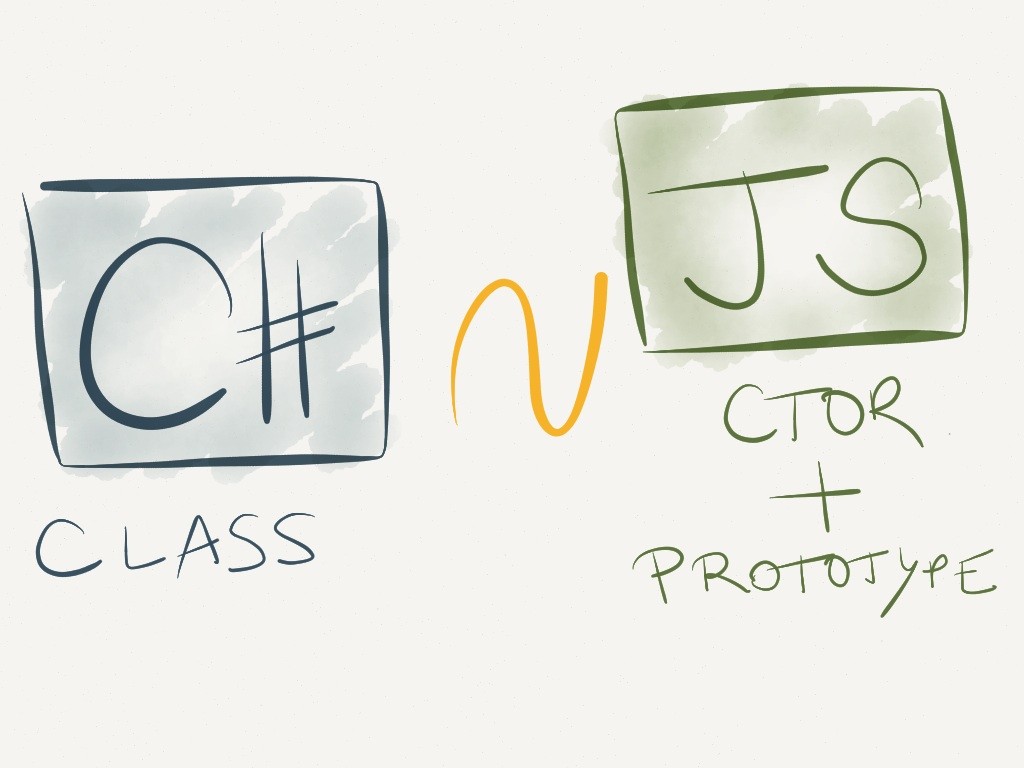 C#
CLASS
~
JS
CTOR
+
PROTOTYPE